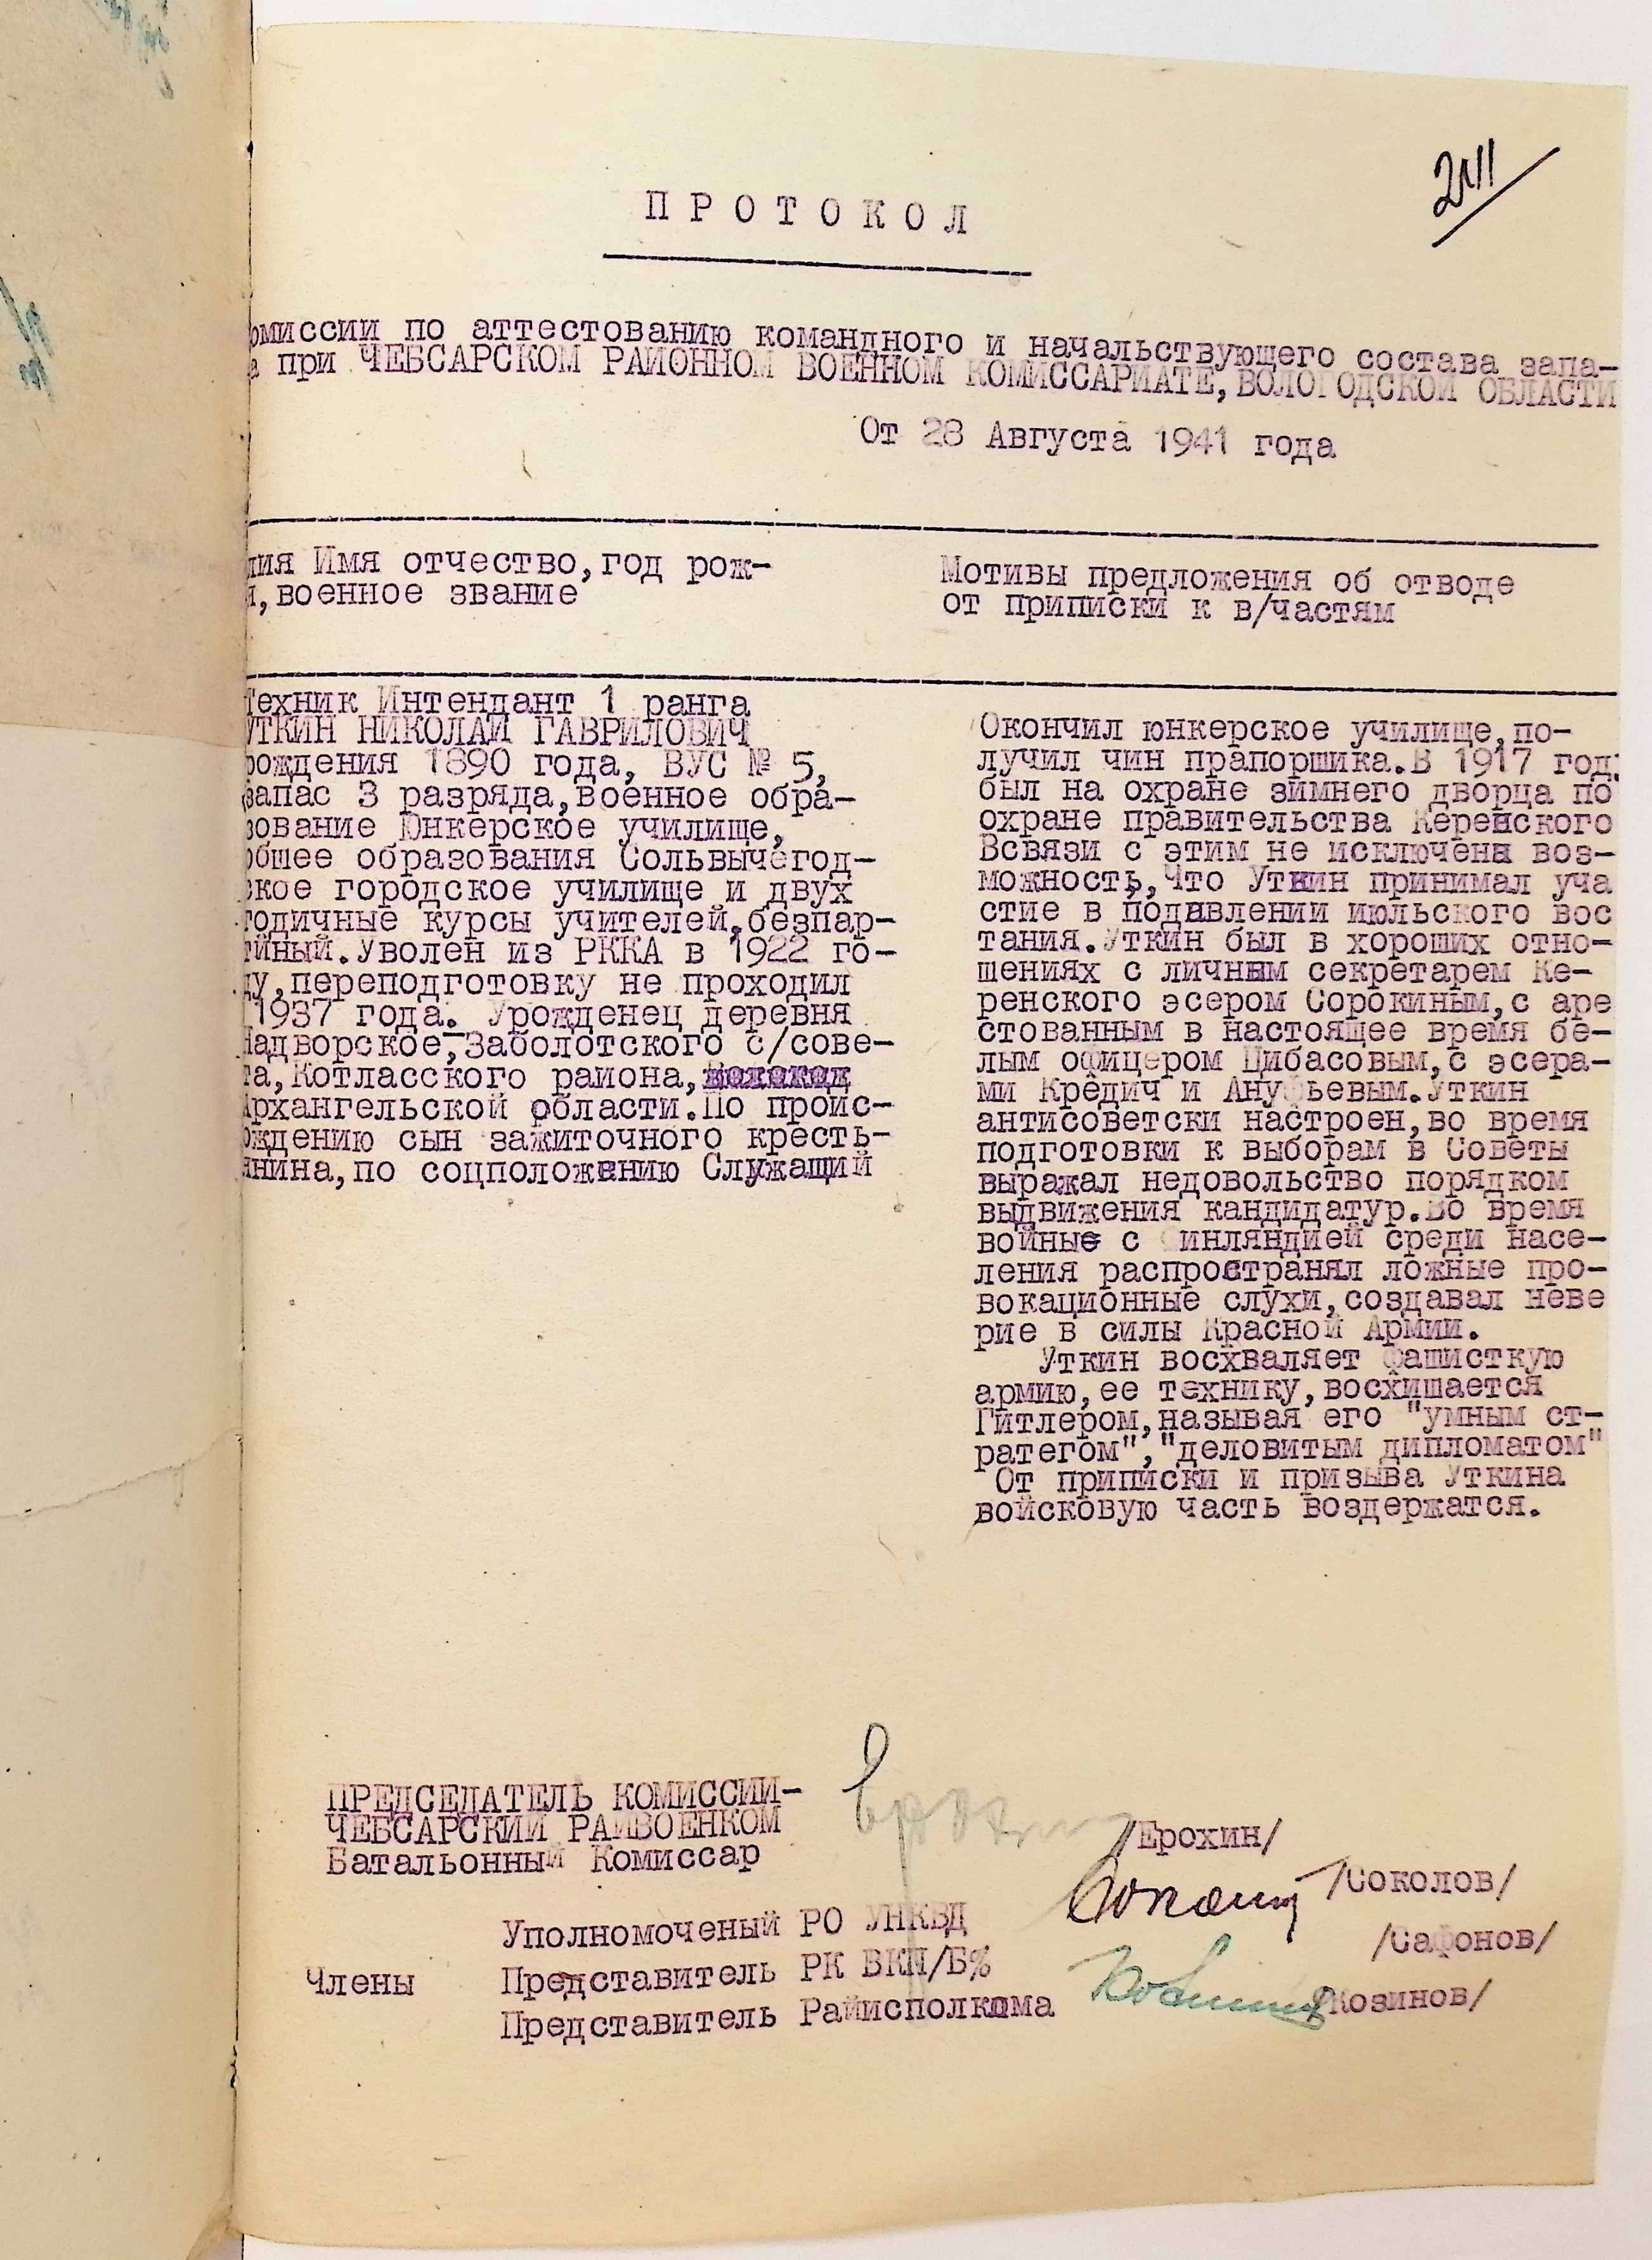 211
ПРОТОКОЛ
омиссии по аттестованию командного и начальствующего состава запа-
а при ЧЕБСАРСКОМ РАЙОННОМ ВОЕННОМ КОМИССАРИАТЕ, ВОЛОГОДСКОЙ ОБЛАСТИ
От 28 Августа 1941 года
лия Имя отчество, год рож-
я, военное звание
Мотивы предложения об отводе
от приписки к в/частям
Техник Интендант 1 ранга
УТКИН НИКОЛАЙ ГАВРИЛОВИЧ
рождения 1890 года, ВУС № 5,
запас 3 разряда, военное обра-
зование Юнкерское училище,
общее образования Сольвычегод-
ское городское училище и двух
годичные курсы учителей, безпар-
тийный. Уволен из РККА в 1922 го-
ду, переподготовку не проходил
1937 года. Урожденец деревня
Надворское, Заболотского с/сове-
та, Котласского района,
Архангельской области. По проис-
ождению сын зажиточного кресть-
янина, по соцположению Служащий
Окончил юнкерское училище, по-
лучил чин прапорщика. В 1917 год
был на охране зимнего дворца по
охране правительства Керенского
Всвязи с этим не исключена воз-
можность, что Уткин принимал уча
стие в подавлении июльского вос
тания. Уткин был в хороших отно-
шениях с личным секретарем Ке-
ренского эсером Сорокиным, с аре
стованным в настоящее время бе-
лым офицером Цибасовым, с эсера-
ми Кредич и Ануфьевым. Уткин
антисоветски настроен, во время
подготовки к выборам в Советы
выражал недовольство порядком
выдвижения кандидатур. Во время
войные с Финляндией среди насе-
ления распространял ложные про-
вокационные слухи, создавал неве
рие в силы Красной Армии.
Уткин восхваляет фашисткую
армию, ее технику, восхищается
Гитлером, называя его "умным ст-
ратегом", "деловитым дипломатом"
От приписки и призыва Уткина
войсковую часть воздержатся.
ПРЕДСЕДАТЕЛЬ КОМИССИИ-
ЧЕБСАРСКИЙ РАЙВОЕНКОМ
Батальонный Комиссар
/Ерохин/
Уполномоченый РО УНКВД
/Соколов/
Члены Представитель РК ВКП/Б%
/Сафонов/
Представитель Райисполкома
/Козинов/